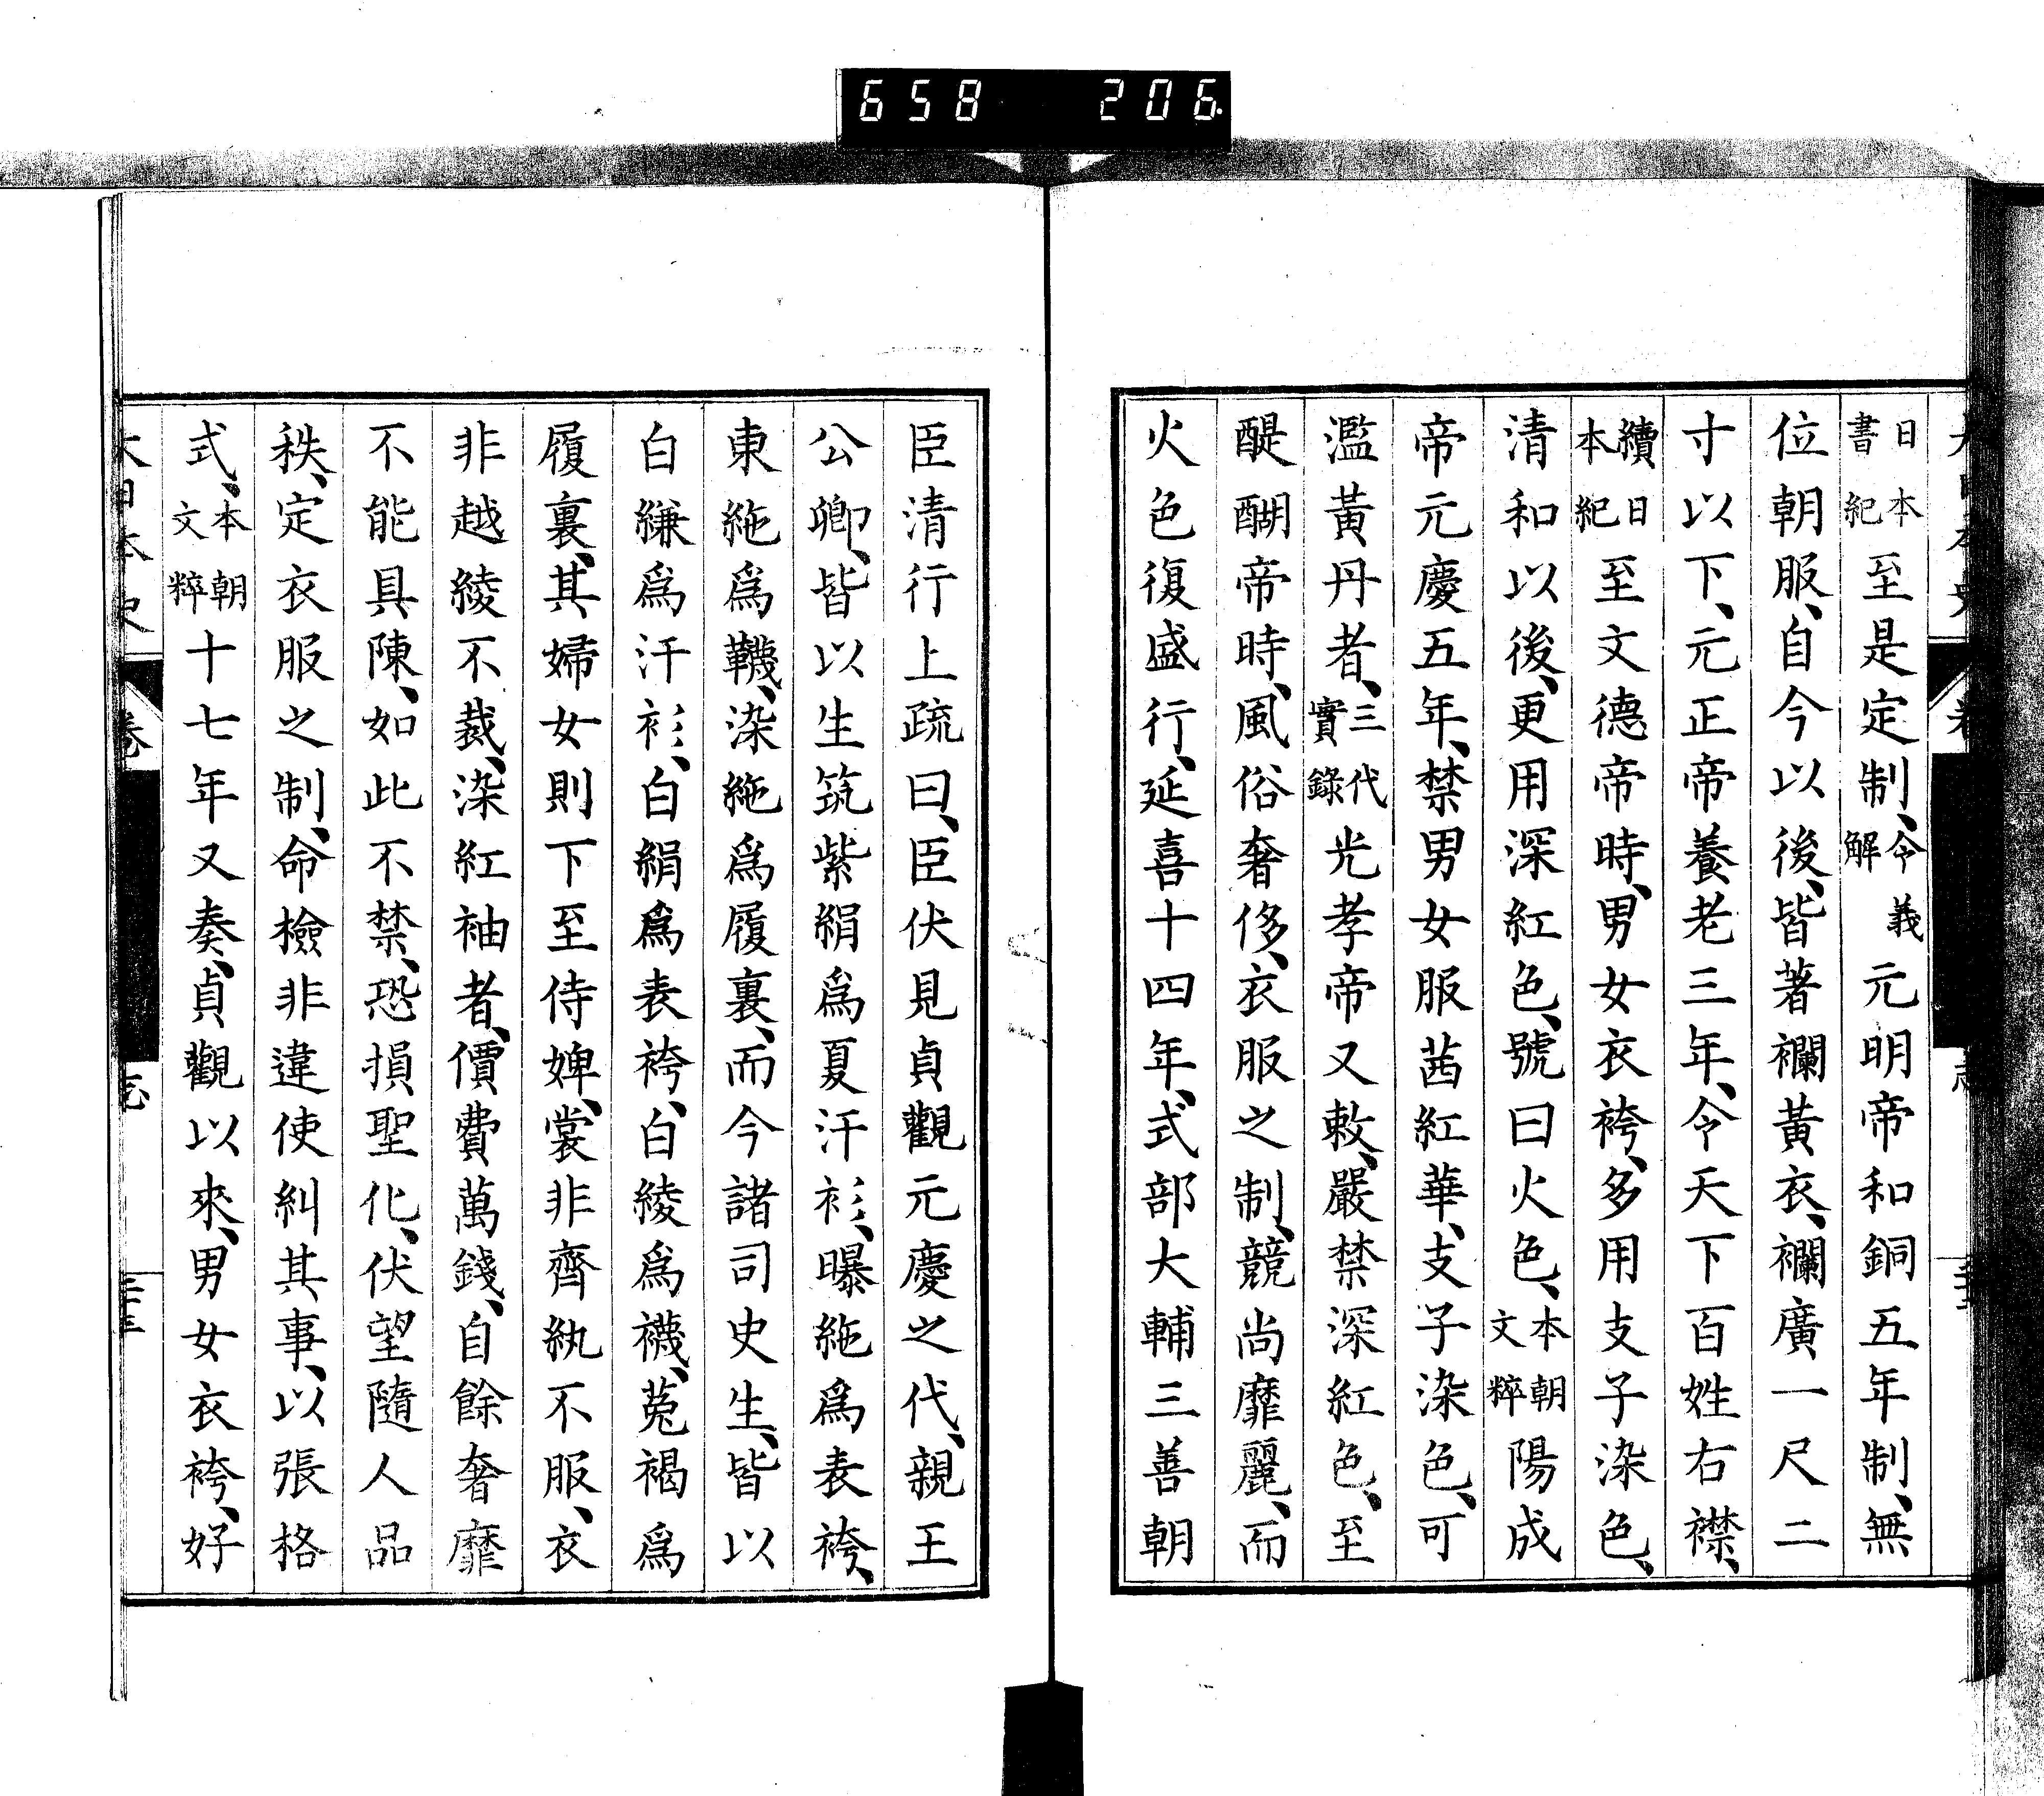 658 206
日本書紀至是定制、令義解元明帝和銅五年制、無
位朝服、自今以後、皆著襴黃衣、襴廣一尺二
寸以下、元正帝養老三年、令天下百姓右襟、
續日本紀至文德帝時、男女衣袴、多用支子染色、
清和以後、更用深紅色、號曰火色、本朝文粹陽成
帝元慶五年、禁男女服茜紅華、支子染色、可
濫黃丹者、三代實錄光孝帝又敕、嚴禁深紅色、至
醍醐帝時、風俗奢侈、衣服之制、競尚靡麗、而
火色復盛行、延喜十四年、式部大輔三善朝
臣清行上疏曰、臣伏見貞觀元慶之代、親王
公卿、皆以生筑紫絹爲夏汗衫、曝絁爲表袴、
東絁爲韈、染絁爲履裏、而今諸司史生、皆以
白縑爲汗衫、白絹爲表袴、白綾爲襪、菟褐爲
履裏、其婦女則下至侍婢、裳非齊紈不服、衣
非越綾不裁、染紅袖者、價費萬錢、自餘奢靡
不能具陳、如此不禁、恐損聖化、伏望隨人品
秩、定衣服之制、命檢非違使糾其事、以張格
式、本朝文粹十七年又奏、貞觀以來、男女衣袴、好
大日本史 卷 志